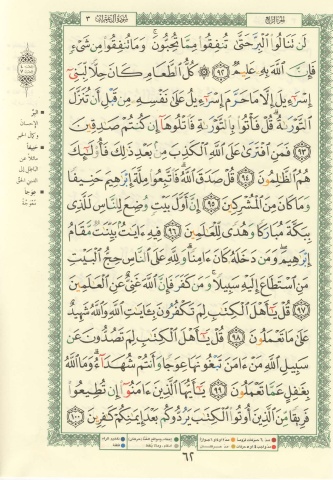 الجزء الرابع
سورة آل عمران ٣
لَن تَنَالُوا۟ ٱلْبِرَّ حَتَّىٰ تُنفِقُوا۟ مِمَّا تُحِبُّونَ ۚ وَمَا تُنفِقُوا۟ مِن شَىْءٍ
فَإِنَّ ٱللَّهَ بِهِۦ عَلِيمٌ ٩٢ ۞ كُلُّ ٱلطَّعَامِ كَانَ حِلًّا لِّبَنِىٓ
إِسْرَٰٓءِيلَ إِلَّا مَا حَرَّمَ إِسْرَٰٓءِيلُ عَلَىٰ نَفْسِهِۦ مِن قَبْلِ أَن تُنَزَّلَ
ٱلتَّوْرَىٰةُ ۗ قُلْ فَأْتُوا۟ بِٱلتَّوْرَىٰةِ فَٱتْلُوهَآ إِن كُنتُمْ صَٰدِقِينَ
٩٣ فَمَنِ ٱفْتَرَىٰ عَلَى ٱللَّهِ ٱلْكَذِبَ مِنۢ بَعْدِ ذَٰلِكَ فَأُو۟لَٰٓئِكَ
هُمُ ٱلظَّٰلِمُونَ ٩٤ قُلْ صَدَقَ ٱللَّهُ ۗ فَٱتَّبِعُوا۟ مِلَّةَ إِبْرَٰهِيمَ حَنِيفًا
وَمَا كَانَ مِنَ ٱلْمُشْرِكِينَ ٩٥ إِنَّ أَوَّلَ بَيْتٍ وُضِعَ لِلنَّاسِ لَلَّذِى
بِبَكَّةَ مُبَارَكًا وَهُدًى لِّلْعَٰلَمِينَ ٩٦ فِيهِ ءَايَٰتٌۢ بَيِّنَٰتٌ مَّقَامُ
إِبْرَٰهِيمَ ۖ وَمَن دَخَلَهُۥ كَانَ ءَامِنًا ۗ وَلِلَّهِ عَلَى ٱلنَّاسِ حِجُّ ٱلْبَيْتِ
مَنِ ٱسْتَطَاعَ إِلَيْهِ سَبِيلًا ۚ وَمَن كَفَرَ فَإِنَّ ٱللَّهَ غَنِىٌّ عَنِ ٱلْعَٰلَمِينَ
٩٧ قُلْ يَٰٓأَهْلَ ٱلْكِتَٰبِ لِمَ تَكْفُرُونَ بِـَٔايَٰتِ ٱللَّهِ وَٱللَّهُ شَهِيدٌ
عَلَىٰ مَا تَعْمَلُونَ ٩٨ قُلْ يَٰٓأَهْلَ ٱلْكِتَٰبِ لِمَ تَصُدُّونَ عَن
سَبِيلِ ٱللَّهِ مَنْ ءَامَنَ تَبْغُونَهَا عِوَجًا وَأَنتُمْ شُهَدَآءُ ۗ وَمَا ٱللَّهُ
بِغَٰفِلٍ عَمَّا تَعْمَلُونَ ٩٩ يَٰٓأَيُّهَا ٱلَّذِينَ ءَامَنُوٓا۟ إِن تُطِيعُوا۟
فَرِيقًا مِّنَ ٱلَّذِينَ أُوتُوا۟ ٱلْكِتَٰبَ يَرُدُّوكُم بَعْدَ إِيمَٰنِكُمْ كَٰفِرِينَ ١٠٠
البرّ
الإحسان
وكمال الخير
حنيفاً
مائلاً عن
الباطل إلى
الدين الحق
عِوَجاً
مُعْوَجَّة
٦٢